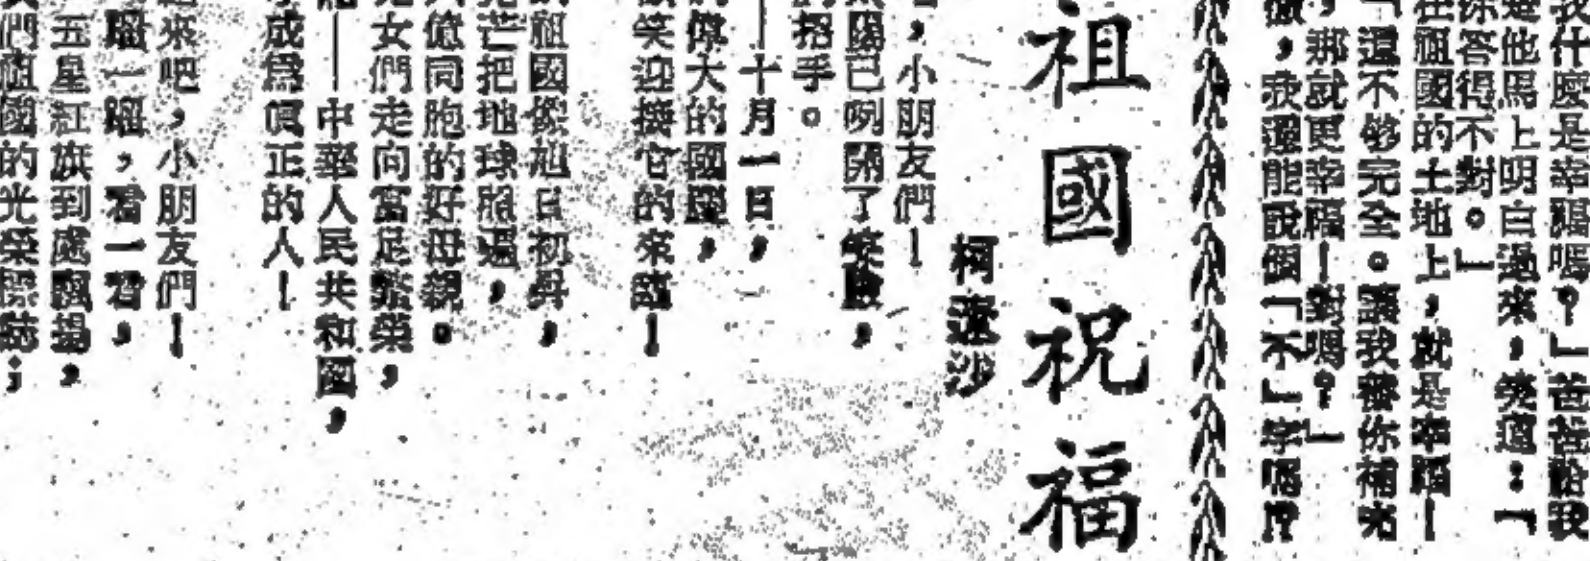 我什麼是幸福嗎？」爸爸盼我
他馬上明白過來，笑道：「
你答得不對。」
在祖國的土地上，就是幸福！
「還不够完全。讓我替你補充
，那就更幸福！對嗎？」
，我還能說個「不」字嗎⁉
祖國祝福
柯遠沙
，小朋友們！
太陽已咧開了笑臉，
招手。
——十月一日，
偉大的國慶，
笑迎接它的來臨！
祖國像旭日初昇，
光芒把地球照遍，
億同胞的好母親。
兒女們走向富足繁榮，
——中華人民共和國，
成爲眞正的人！
來吧，小朋友們！
瞧一瞧，看一看，
五星紅旗到處飄揚，
我們祖國的光榮標誌；